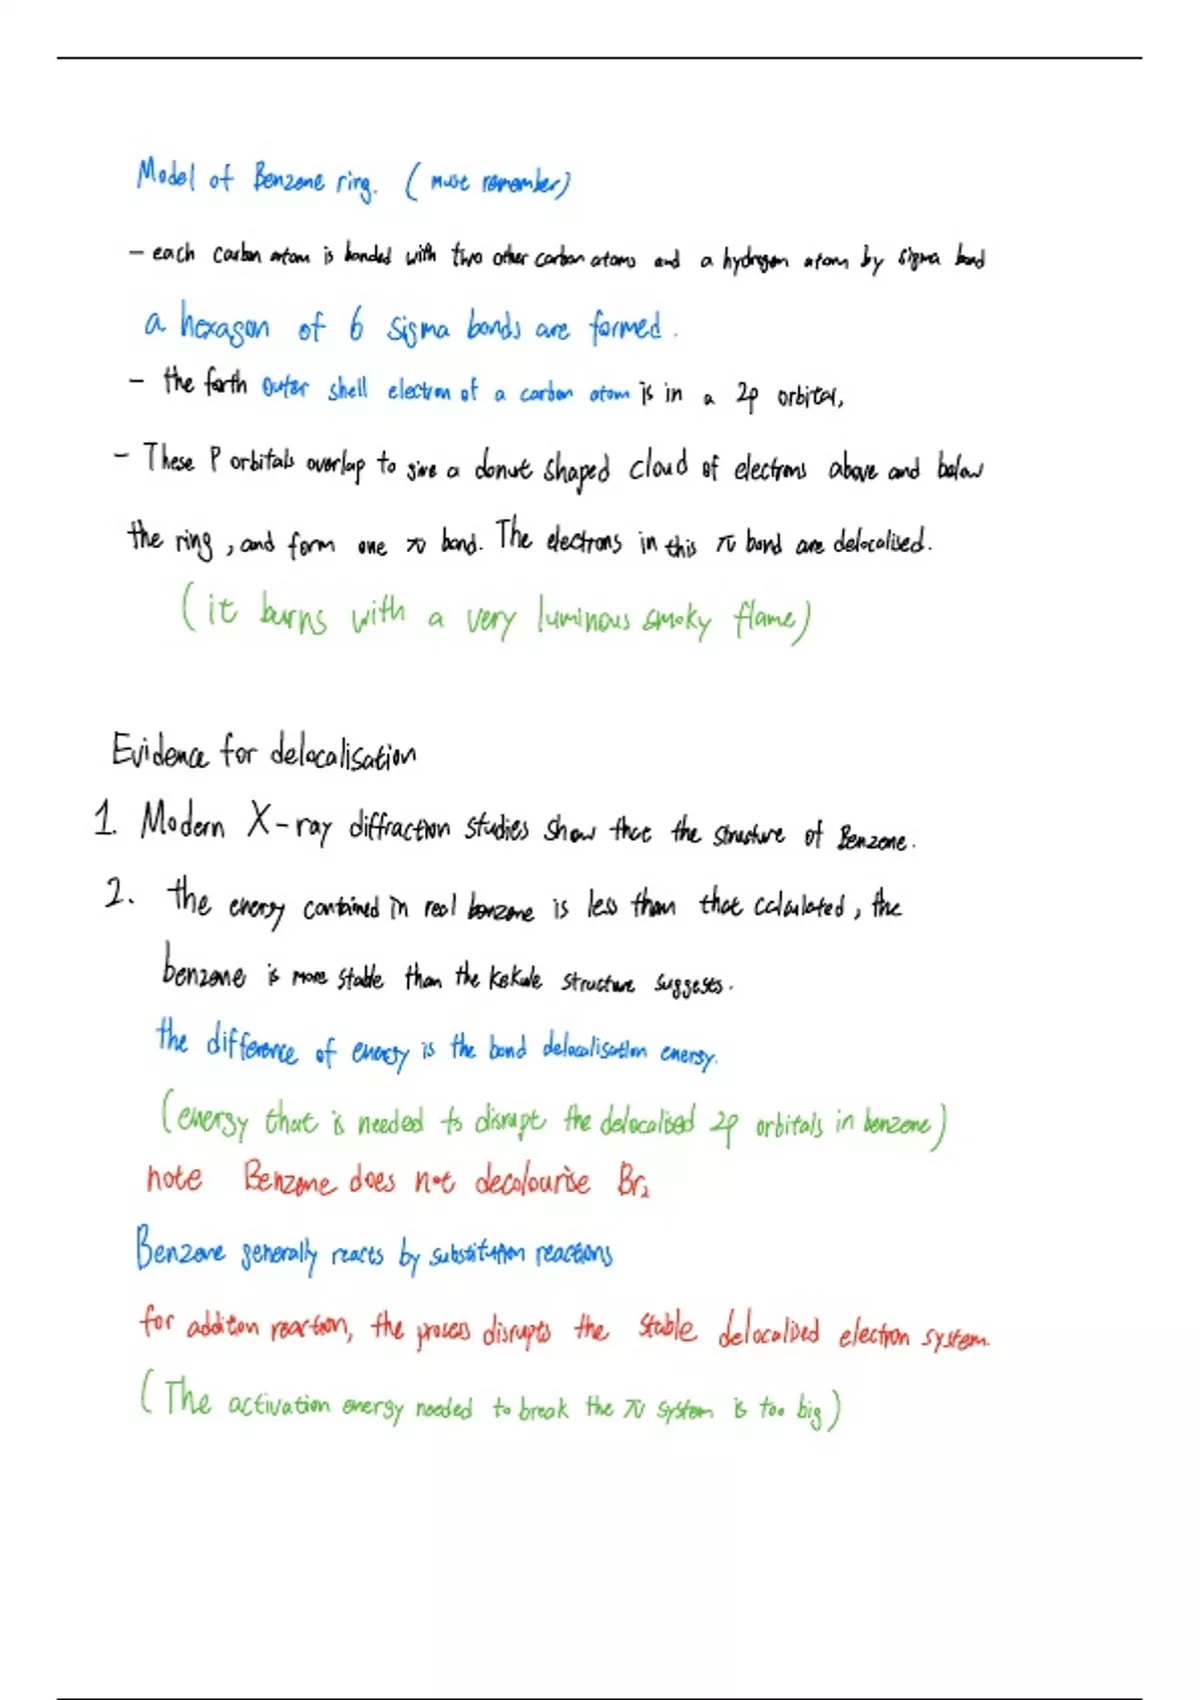 Model of Benzene ring. (must remember)
- each carbon atom is bonded with two other carbon atoms and a hydrogen atom by sigma bond
a hexagon of 6 sigma bonds are formed.
- the forth outer shell electron of a carbon atom is in a 2p orbital,
- These P orbitals overlap to give a donut shaped cloud of electrons above and below
the ring, and form one π bond. The electrons in this π bond are delocalised.
(it burns with a very luminous smoky flame)
Evidence for delocalisation
1. Modern X-ray diffraction studies show that the structure of Benzene.
2. the energy contained in real benzene is less than that calculated, the
benzene is more stable than the Kekule structure suggests.
the difference of energy is the bond delocalisation energy.
(energy that is needed to disrupt the delocalised 2p orbitals in benzene)
note Benzene does not decolourise Br₂
Benzene generally reacts by substitution reactions
for addition reaction, the process disrupts the stable delocalised electron system.
(The activation energy needed to break the π system is too big)